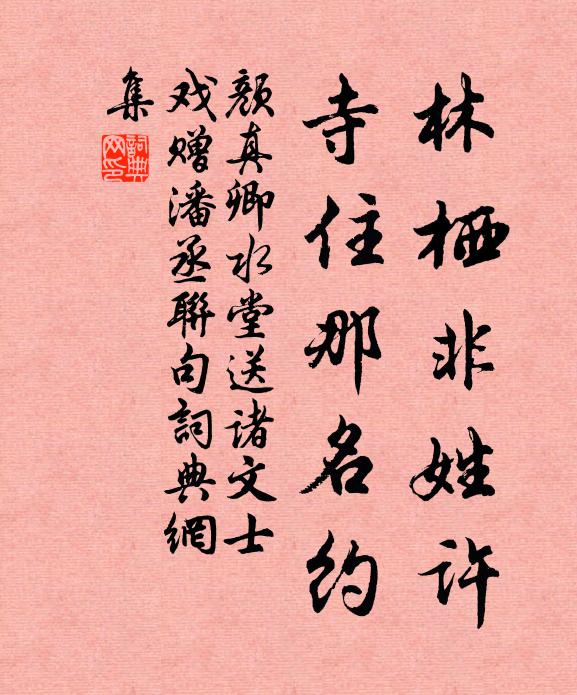 林栖非姓许
寺住那名约
颜真卿水堂送诸文士
戏赠潘丞聯句詞典網
集
詞典
网印